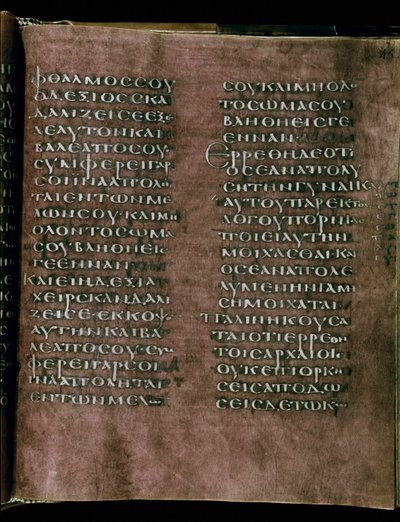 ΦΘΑΛΜΟϹϹΟΥ
ΟΔΕΞΙΟϹϹΚΑ
ΔΑΛΙΖΕΙϹΕΕΞΕ
ΛΕΑΥΤΟΝΚΑΙ
ΒΑΛΕΑΠΟϹΟΥ·
ϹΥΜΦΕΡΕΙΓΑΡ
ϹΟΙΙΝΑΑΠΟΛΗ
ΤΑΙΕΝΤΩΝΜΕ
ΛΩΝϹΟΥ·ΚΑΙΜΗ
ΟΛΟΝΤΟϹΩΜΑ
ϹΟΥΒΛΗΘΗΕΙϹ
ΓΕΕΝΝΑΝ
ΚΑΙΕΙΗΔΕΞΙΑ
ΧΕΙΡϹΚΑΝΔΑΛΙ
ΖΕΙϹΕ·ΕΚΚΟΨΟΝ
ΑΥΤΗΝΚΑΙΒΑ
ΛΕΑΠΟϹΟΥ·ϹΥΜ
ΦΕΡΕΙΓΑΡϹΟΙ
ΙΝΑΑΠΟΛΗΤΑΙ
ΕΝΤΩΝΜΕΛΩΝ
ϹΟΥΚΑΙΜΗΟΛΟΝ
ΤΟϹΩΜΑϹΟΥ
ΒΛΗΘΗΕΙϹΓΕ
ΕΝΝΑΝ·
ΕΡΡΕΘΗΔΕΟΤΙ
ΟϹΕΑΝΑΠΟΛΥ
ϹΗΤΗΝΓΥΝΑΙΚΑ
ΑΥΤΟΥΠΑΡΕΚΤΟϹ
ΛΟΓΟΥΠΟΡΝΙΑϹ
ΠΟΙΕΙΑΥΤΗΝ
ΜΟΙΧΑϹΘΑΙ·ΚΑΙ
ΟϹΕΑΝΑΠΟΛΕ
ΛΥΜΕΝΗΝΓΑΜΗ
ϹΗΜΟΙΧΑΤΑΙ·
ΠΑΛΙΝΗΚΟΥϹΑ
ΤΑΙΟΤΙΕΡΡΕΘΗ
ΤΟΙϹΑΡΧΑΙΟΙϹ
ΟΥΚΕΠΙΟΡΚΗ
ϹΕΙϹΑΠΟΔΩ
ϹΕΙϹΔΕΤΩΚΩ